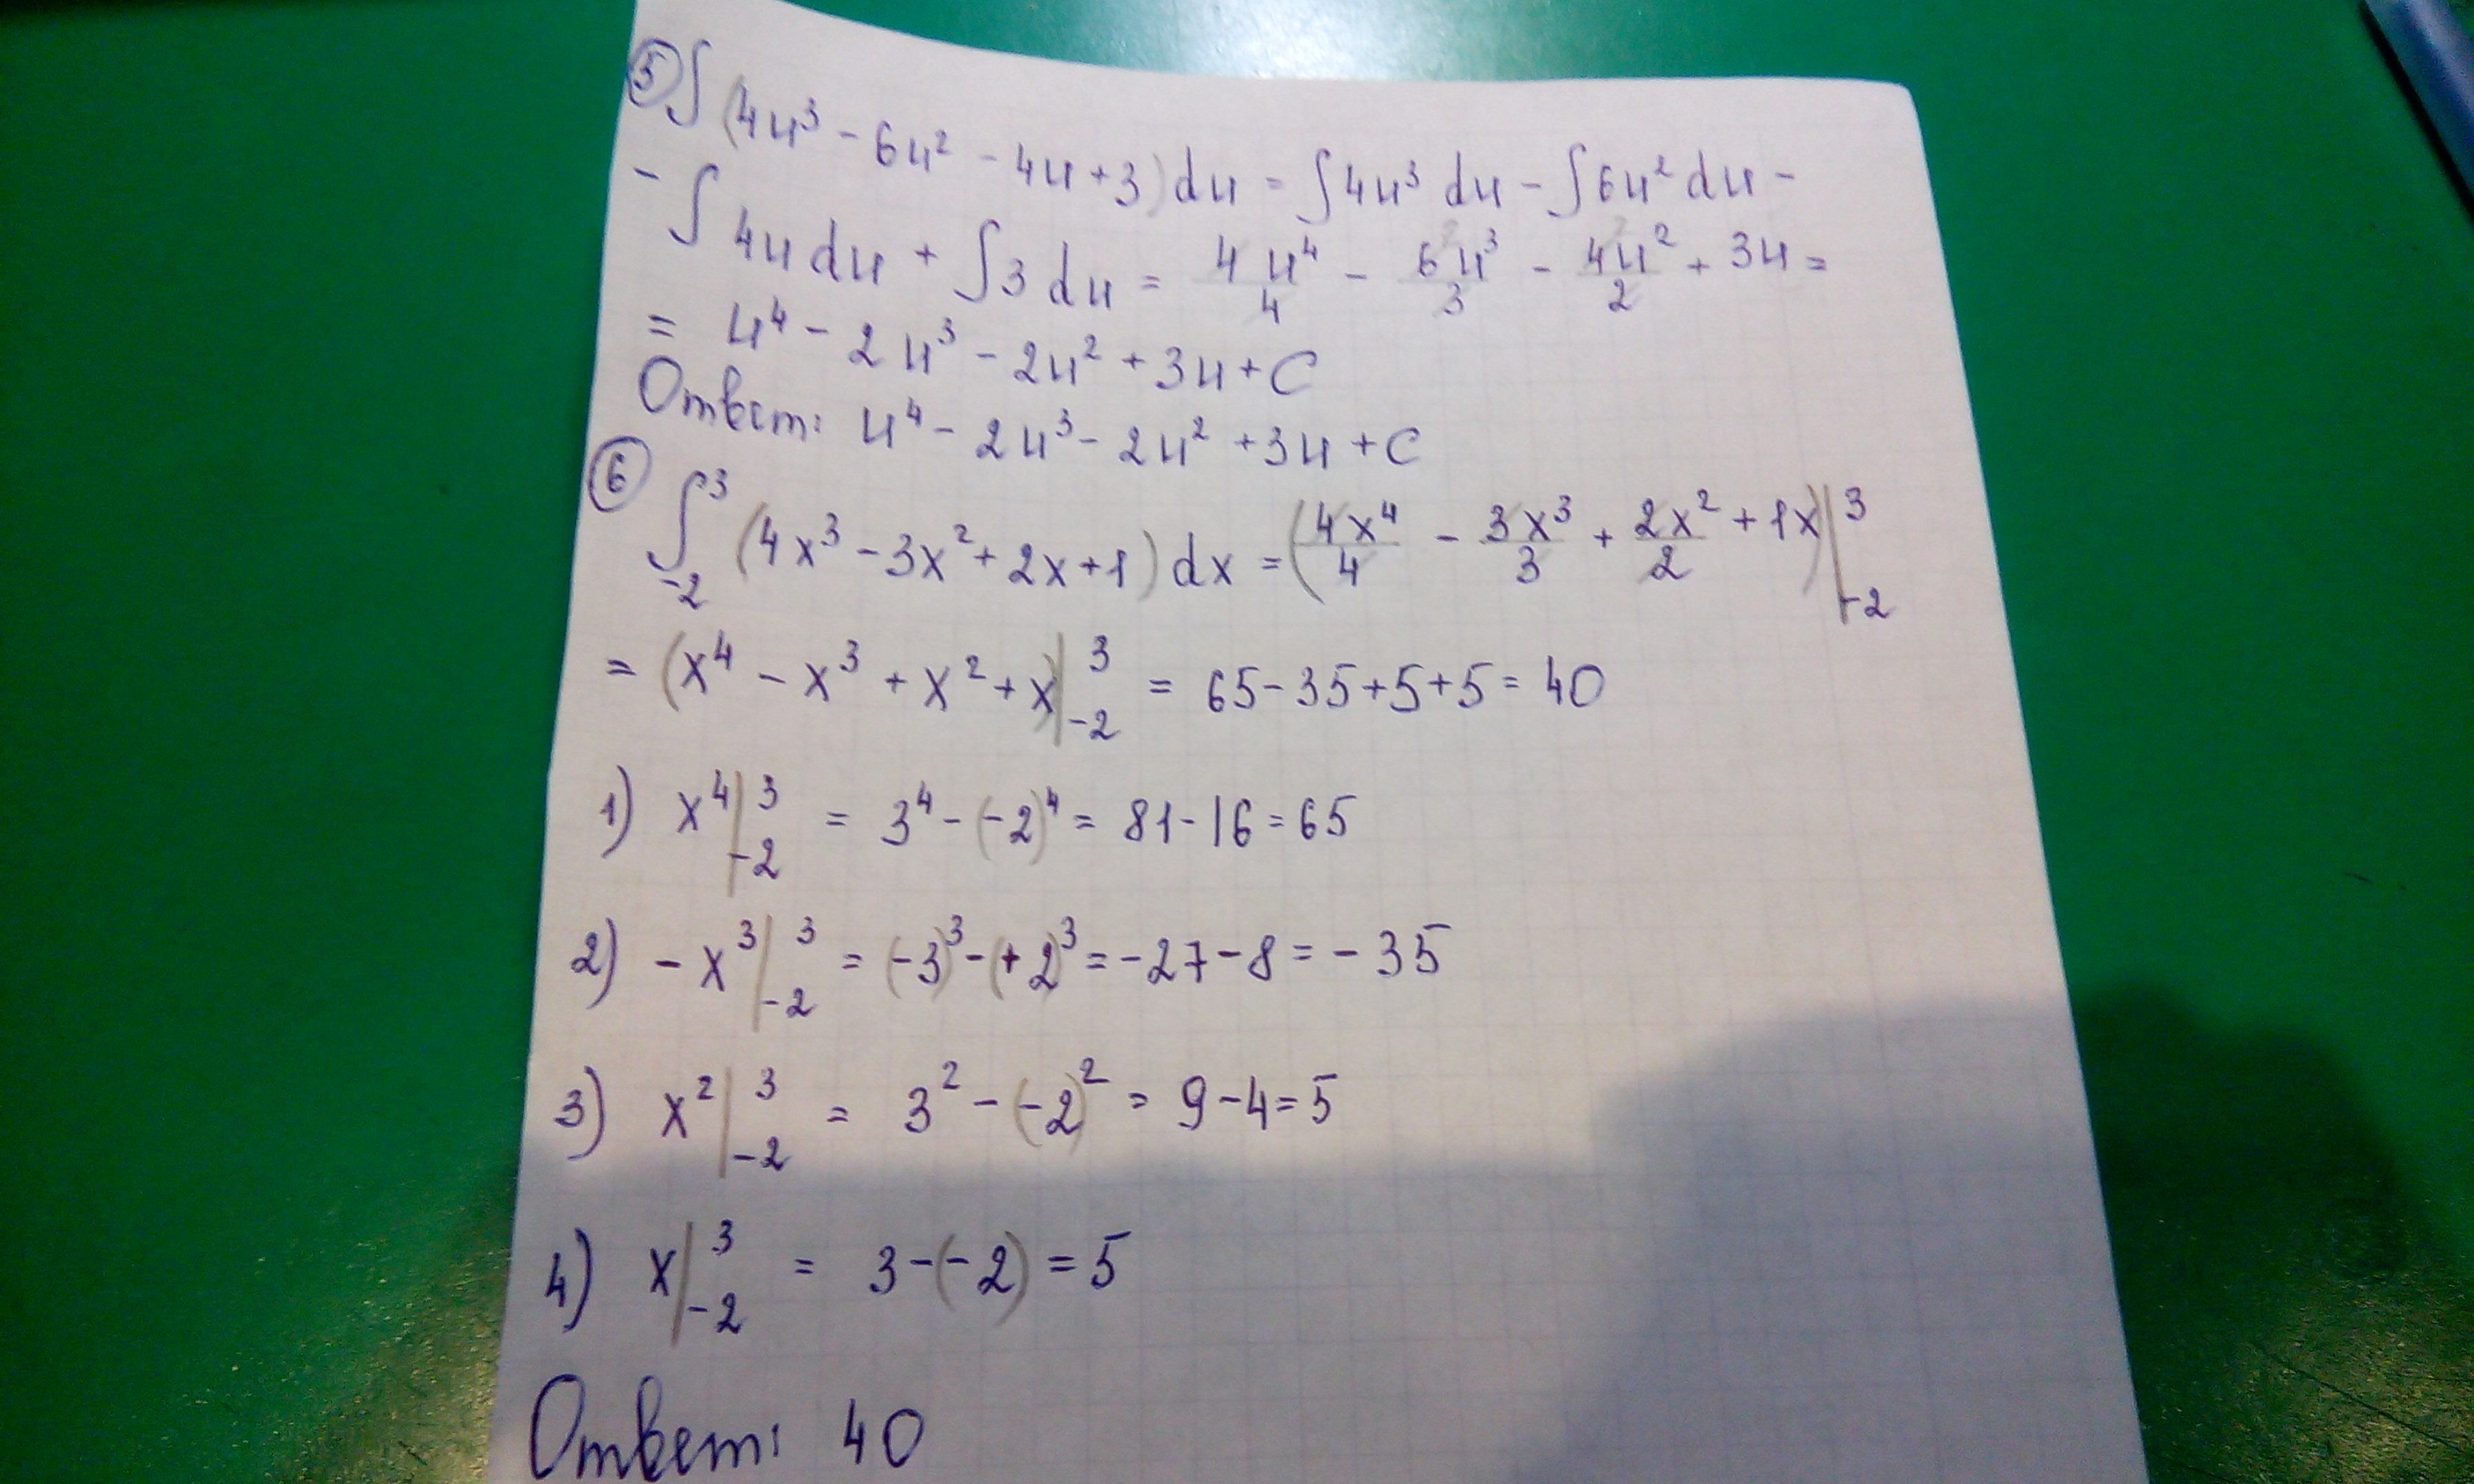 ⑤ ∫ (4u³ - 6u² - 4u + 3) du = ∫4u³ du - ∫6u² du -
- ∫ 4u du + ∫3 du = 4u⁴/4 - 6u³/3 - 4u²/2 + 3u =
= u⁴ - 2u³ - 2u² + 3u + C
Ответ: u⁴ - 2u³ - 2u² + 3u + C
⑥ ∫₋₂³ (4x³ - 3x² + 2x + 1) dx = (4x⁴/4 - 3x³/3 + 2x²/2 + 1x)|₋₂³
= (x⁴ - x³ + x² + x)|₋₂³ = 65 - 35 + 5 + 5 = 40
1) x⁴|₋₂³ = 3⁴ - (-2)⁴ = 81 - 16 = 65
2) - x³|₋₂³ = (-3)³ - (+2)³ = -27 - 8 = -35
3) x²|₋₂³ = 3² - (-2)² = 9 - 4 = 5
4) x|₋₂³ = 3 - (-2) = 5
Ответ: 40